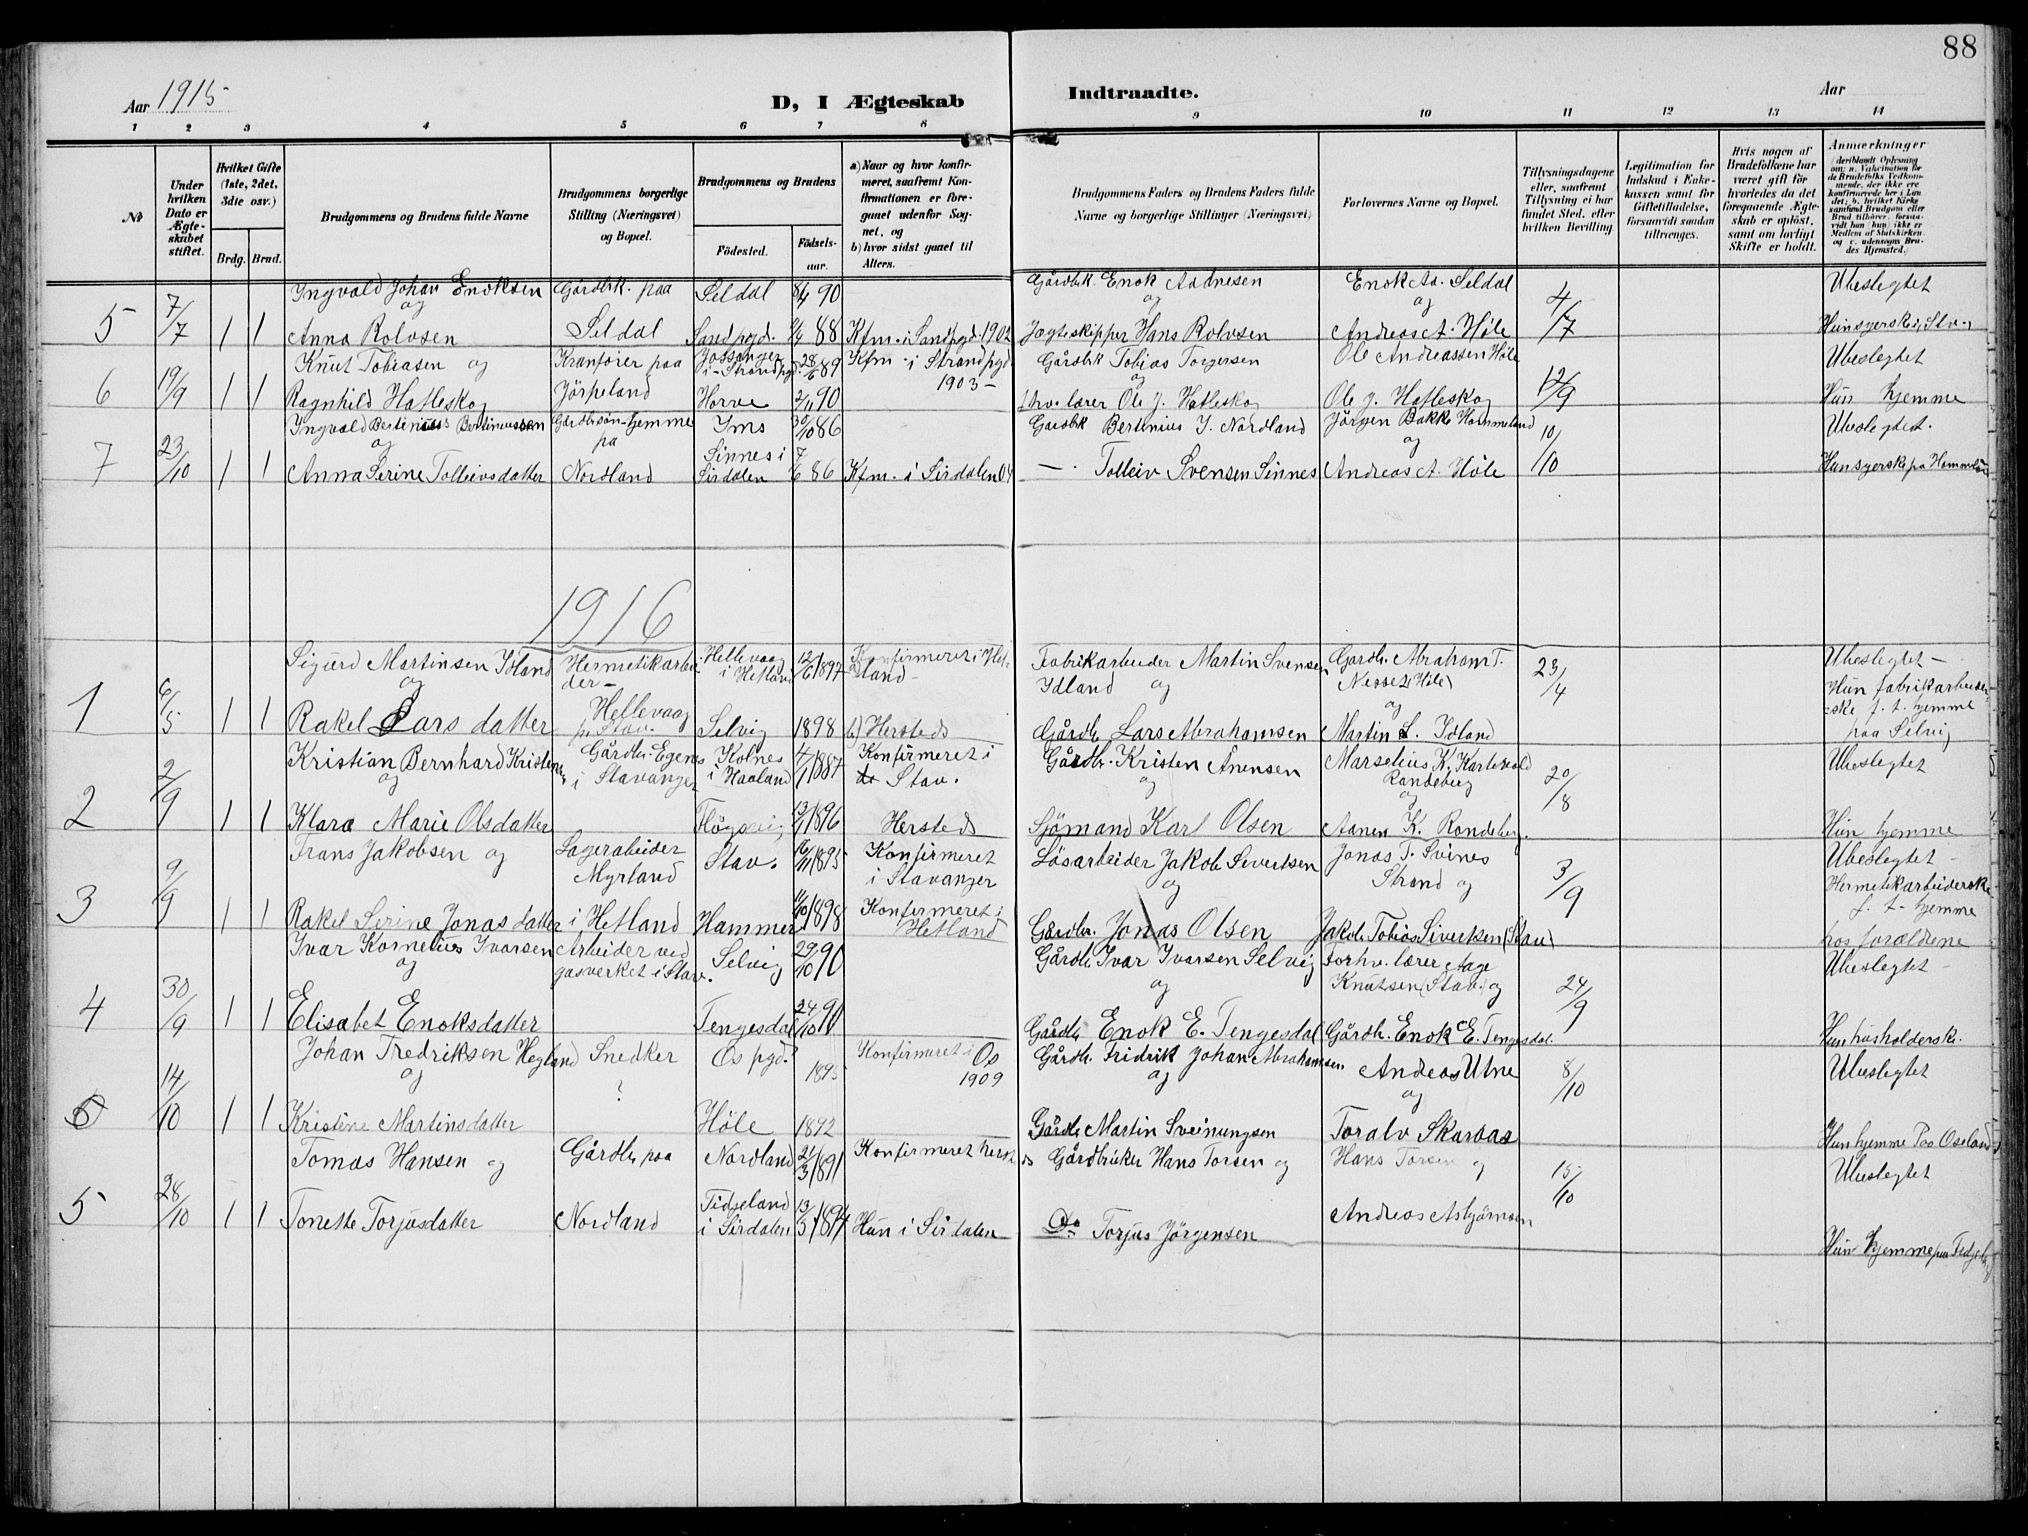 88
Aar 1915
D, I Ægteskab Indtraadte.
Aar
1 2 3 4 5 6 7 8 9 10 11 12 13 14
No
Under hvilken Dato er Ægteskabet stiftet.
Hvilket Gifte (1ste, 2det, 3die osv.)
Brdg. Brud.
Brudgommens og Brudens fulde Navne
Brudgommens borgerlige Stilling (Næringsvei) og Bopæl.
Brudgommens og Brudens
Fødested.
Fødsels-aar.
a) Naar og hvor konfirmeret, saafremt Konfirmationen er foregaaet udenfor Sognet, og
b) hvor sidst gaaet til Alters.
Brudgommens Faders og Brudens Faders fulde Navne og borgerlige Stillinger (Næringsvei)
Forlovernes Navne og Bopæl.
Tillysningsdagene eller, saafremt Tillysning ei har fundet Sted, efter hvilken Bevilling.
Legitimation for Indskud i Enkekassen samt for Giftetilladelse, forsaavidt saadan tiltrænges.
Hvis nogen af Brudefolkene har været gift før hvorledes da det foregaaende Ægteskab er opløst, samt om lovligt Skifte er holdt.
Anmærkninger
5 7/7 1 1
Ingvald Johan Enoksen og Gårdbk. paa Seldal 90 Gårdbk. Enok Aadnesen og Enok Aa. Seldal og 4/7 Ubeslegtet
Anna Rolvsen Seldal Sand pgd. 88 Kfm. i Sand pgd. 1902 Jægteskipper Hans Rolvsen Andreas A. Høle
6 19/9 1 1
Knut Tobiasen og Kranfører paa i Strand pgd. 28/6 89 Kfm. i Strand pgd. 1903 Gårdbk Tobias Torgersen og Ole Andreassen Høle 12/9 Ubeslegtet
Ragnhild Hatleskog Jörpeland Horve 2/11 90 lærer Ole J. Hatleskog Ole J. Hatleskog Hun hjemme
7 23/10 1 1
Ingvald Bertinius Bertinussen og Gårdbrsøn hjemme pa Ims 30/10 86 Gårdbk Bertinius I. Nordland Jörgen Bakke Hommeland og 10/10 Ubeslegtet.
Anna Serine Tolleivsdatter Nordland Sinnes i Sirdalen 7/6 86 Kfm. i Sirdalen 04 Tolleiv Svensen Sinnes Andreas A. Høle
1916
1 6/5 1 1
Sigurd Martinsen Idland og Hermetikarbeider Hellevaag i Hetland 12/6 1897 Konfirmeret i Hetland Fabrikarbeider Martin Svensen Ydland og Gardb. Abraham T. Nesset (Høle) og 23/4 Ubeslegtet
Rakel Lars datter Hellevaag pr Stav. Selvig 1898 b) Hersteds Gårdb. Lars Abrahamsen Martin L. Idland Hun fabrikarbeiderske f. t. hjemme paa Selvig
2 2/9 1 1
Kristian Bernhard Kristensen og Gårdb. Egenes i Stavanger Kolnes i Haaland 4/1 1887 Konfirmeret i Stav. Gårdbr. Kristen Anensen Marselius K. Hartevold Randeberg og 20/8 Ubeslegtet
Klara Marie Olsdatter Fløgsvig 13/1 1896 Hersteds Sjömand Karl Olsen Aanen K. Randeberg. Hun hjemme
3 9/9 1 1
Frans Jakobsen og Lagerabeider Myrland Stav. 16/11 1895 Konfirmeret i Stavanger Løsarbeider Jakob Sivertsen og Jonas T. Svines Strand og 3/9 Ubeslegtet
Rakel Serine Jonas datter i Hetland Hammer 11/10 1898 Konfirmeret i Hetland Gårdbr. Jonas Olsen Jakob Tobias Sivertsen (Stav) Hermetikarbeiderske f. t. hjemme hos forældrene
4 30/9 1 1
Ivar Kornelius Ivarsen og Arbeider ved gasverket i Stav. Selvig 29/10 90 Gårdb Ivar Ivarsen Selvig og Forhv. lærer Aage Knutsen (Stav.) og 24/9 Ubeslegtet
Elisabet Enoksdatter Tengesdal 24/10 90 Gårdb Enok E. Tengesdal Gårdb. Enok E. Tengesdal. Hun husholderske.
5 14/10 1 1
Johan Fredriksen Hegland og Snedker ? Os pgd. 1895 Konfirmeret i Os 1909 Gårdb. Fridrik Johan Abrahamsen og Andreas Utne og 8/10 Ubeslegtet
Kristine Martinsdatter Høle 1892 Gårdb Martin Sveinungsen Toralv Skarvas Hun hjemme Paa Oseland
5 28/10 1 1
Tomas Hansen og Gårdbr paa Nordland 21/3 1891 Konfirmeret herst Gårdbruker Hans Torsen og Hans Torsen og 15/10 Ubeslegtet
Tonette Torjusdatter Nordland Tidjeland i Sirdalen 13/5 1894 Hun i Sirdalen Do Torjus Jörgensen Andreas Asbjörnsen Hun hjemme paa